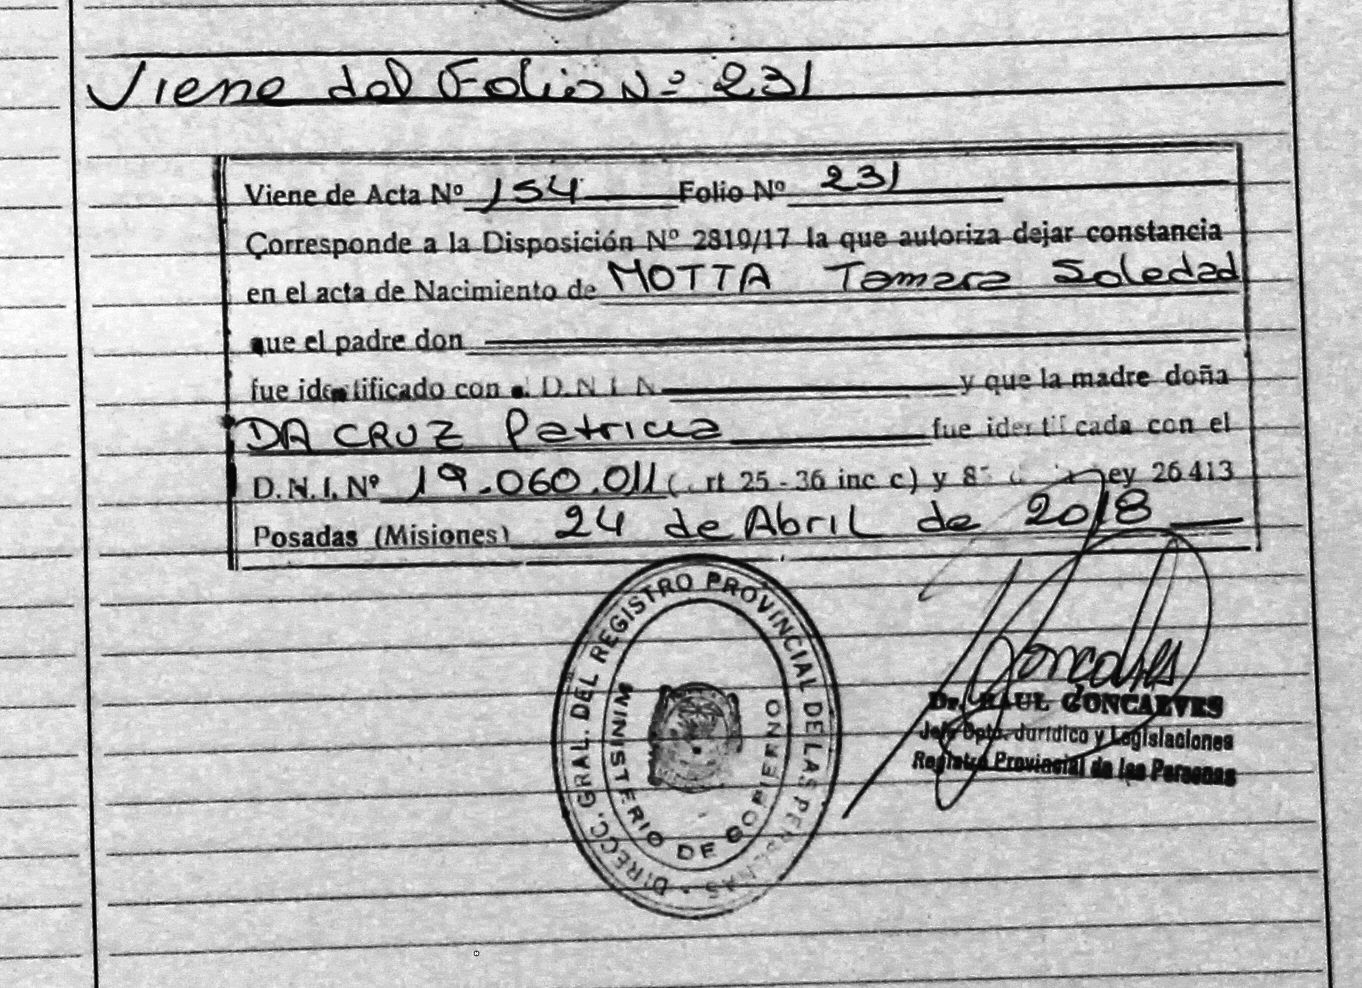 Viene del Folio Nº 231
Viene de Acta Nº 154 Folio Nº 231
Corresponde a la Disposición Nº 2819/17 la que autoriza dejar constancia
en el acta de Nacimiento de MOTTA Tamara Soledad
que el padre don
fue identificado con el D.N.I. N y que la madre doña
DA CRUZ Patricia fue identificada con el
D.N.I. Nº 19.060.011 (art 25 - 36 inc c) y Ley 26413
Posadas (Misiones) 24 de Abril de 2018
DIRECC. GRAL. DEL REGISTRO PROVINCIAL DE LAS PERSONAS
MINISTERIO DE GOBIERNO
Goncalves
Dr. RAUL GONCALVES
Jefe Dpto. Jurídico y Legislaciones
Registro Provincial de las Personas